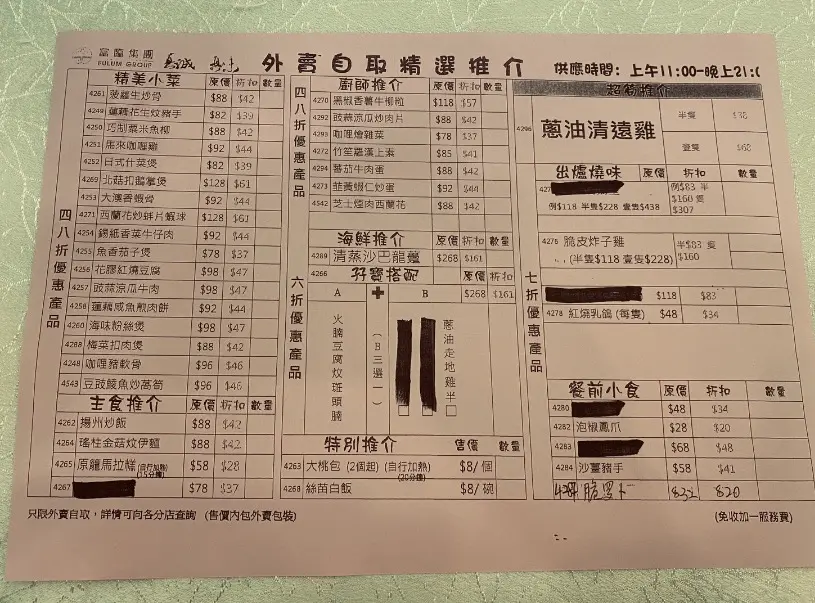 富臨集團
FULUM GROUP
外賣自取精選推介
供應時間: 上午11:00-晚上21:0
四八折優惠產品
精美小菜 原價 折扣 數量
4261 菠蘿生炒骨 $88 $42
4249 蓮藕花生炆豬手 $82 $39
4250 巧制粟米魚柳 $88 $42
4251 馬來咖喱雞 $92 $44
4252 日式什菜煲 $82 $39
4269 北菇扣鵝掌煲 $128 $61
4253 大澳香蝦骨 $92 $44
4271 西蘭花炒蚌片蝦球 $128 $61
4254 錫紙香菜牛仔肉 $92 $44
4255 魚香茄子煲 $78 $37
4256 花膠紅燒豆腐 $98 $47
4257 豉蒜涼瓜牛肉 $98 $47
4258 蓮藕咸魚煎肉餅 $92 $44
4260 海味粉絲煲 $98 $47
4268 梅菜扣肉煲 $88 $42
4248 咖喱豬軟骨 $96 $46
4543 豆豉鯪魚炒萵筍 $96 $46
主食推介 原價 折扣 數量
4262 揚州炒飯 $88 $42
4264 瑤柱金菇炆伊麵 $88 $42
4265 原籠馬拉糕 (自行加熱) (15分鐘) $58 $28
4267 $78 $37
四八折優惠產品
廚師推介 原價 折扣 數量
4270 黑椒香薯牛柳粒 $118 $57
4292 豉蒜涼瓜炒肉片 $88 $42
4293 咖哩燴雜菜 $78 $37
4272 竹笙羅漢上素 $85 $41
4294 蕃茄牛肉蛋 $88 $42
4273 韮黃蝦仁炒蛋 $92 $44
4542 芝士煙肉西蘭花 $88 $42
六折優惠產品
海鮮推介 原價 折扣 數量
4289 清蒸沙巴龍躉 $268 $161
4266 孖寶搭配 原價 折扣
A ✚ B $268 $161
火腩豆腐炆斑頭腩
(B三選一)
蔥油走地雞半
特別推介 售價 數量
4263 大桃包 (2個起) (自行加熱) (20分鐘) $8/個
4268 絲苗白飯 $8/碗
超筍推介
4296 蔥油清遠雞 半隻 $38
壹隻 $68
七折優惠產品
出爐燒味 原價 折扣 數量
427
例$118 半隻$228 壹隻$438
例$83 半
$160 隻
$307
4276 脆皮炸子雞
(半隻$118 壹隻$228)
半$83 隻
$160
$118 $83
4278 紅燒乳鴿 (每隻) $48 $34
餐前小食 原價 折扣 數量
4280 $48 $34
4282 泡椒鳳爪 $28 $20
4283 $68 $48
4284 沙薑豬手 $58 $41
$32 $20
只限外賣自取，詳情可向各分店查詢 (售價內包外賣包裝)
(免收加一服務費)